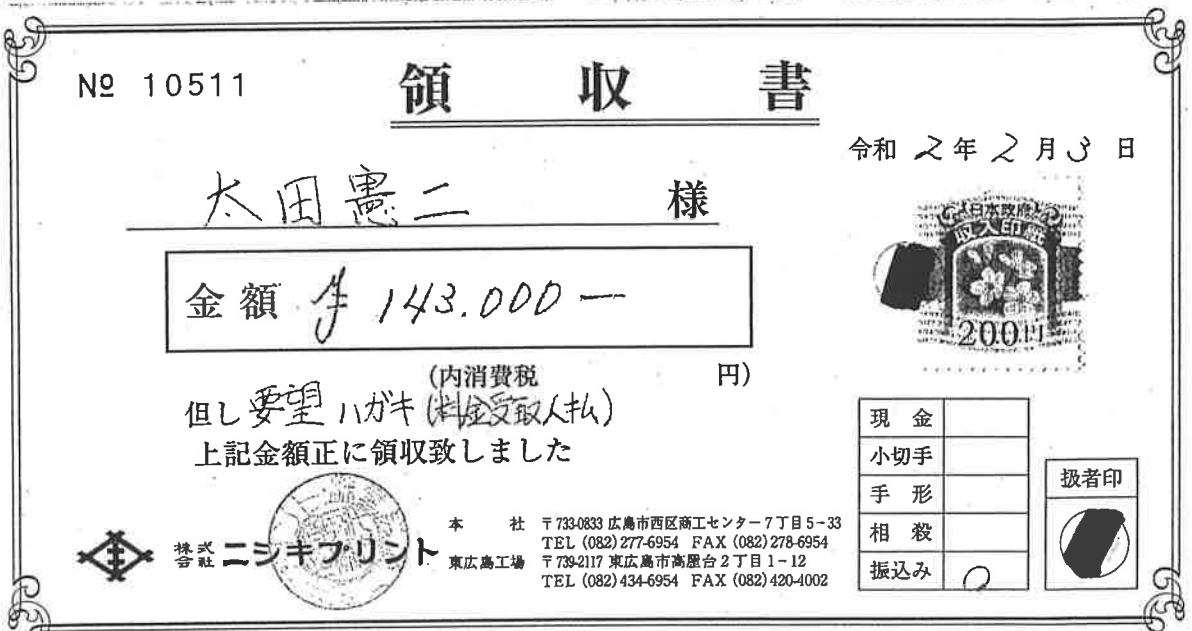 № 10511
領収書
令和 2年 2月 3日
太田憲二 様
日本政府
収入印紙
200円
金額 ¥ 143.000 —
(内消費税 円)
但し 要望ハガキ(料金受取人払)
上記金額正に領収致しました
現金
小切手
手形
相殺
振込み ○
扱者印
株式会社 ニシキプリント
本社 〒733-0833 広島市西区商工センター7丁目5-33
TEL (082)277-6954 FAX (082)278-6954
東広島工場 〒739-2117 東広島市高屋台2丁目1-12
TEL (082)434-6954 FAX (082)420-4002